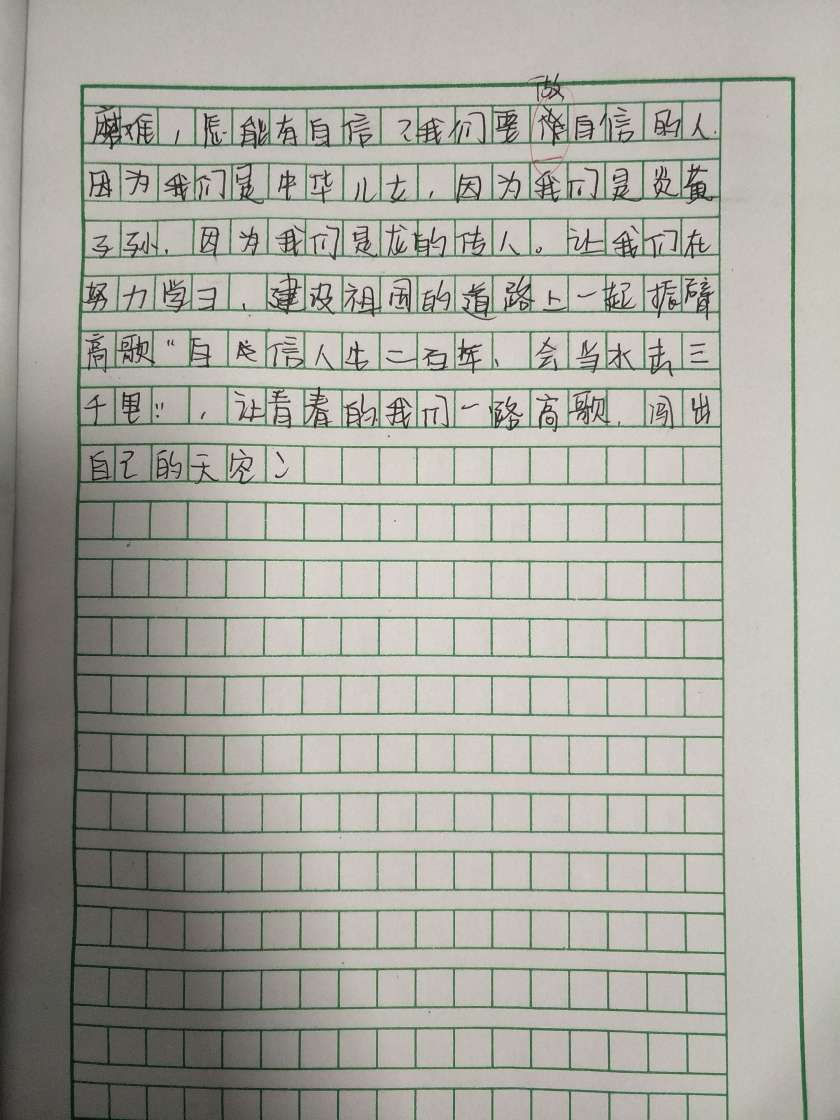 做
磨难，怎能有自信？我们要作自信的人.
因为我们是中华儿女，因为我们是炎黄
子孙.因为我们是龙的传人。让我们在
努力学习、建设祖国的道路上一起振臂
高歌“自信人生二百年、会当水击三
千里!”，让青春的我们一路高歌.闯出
自己的天空